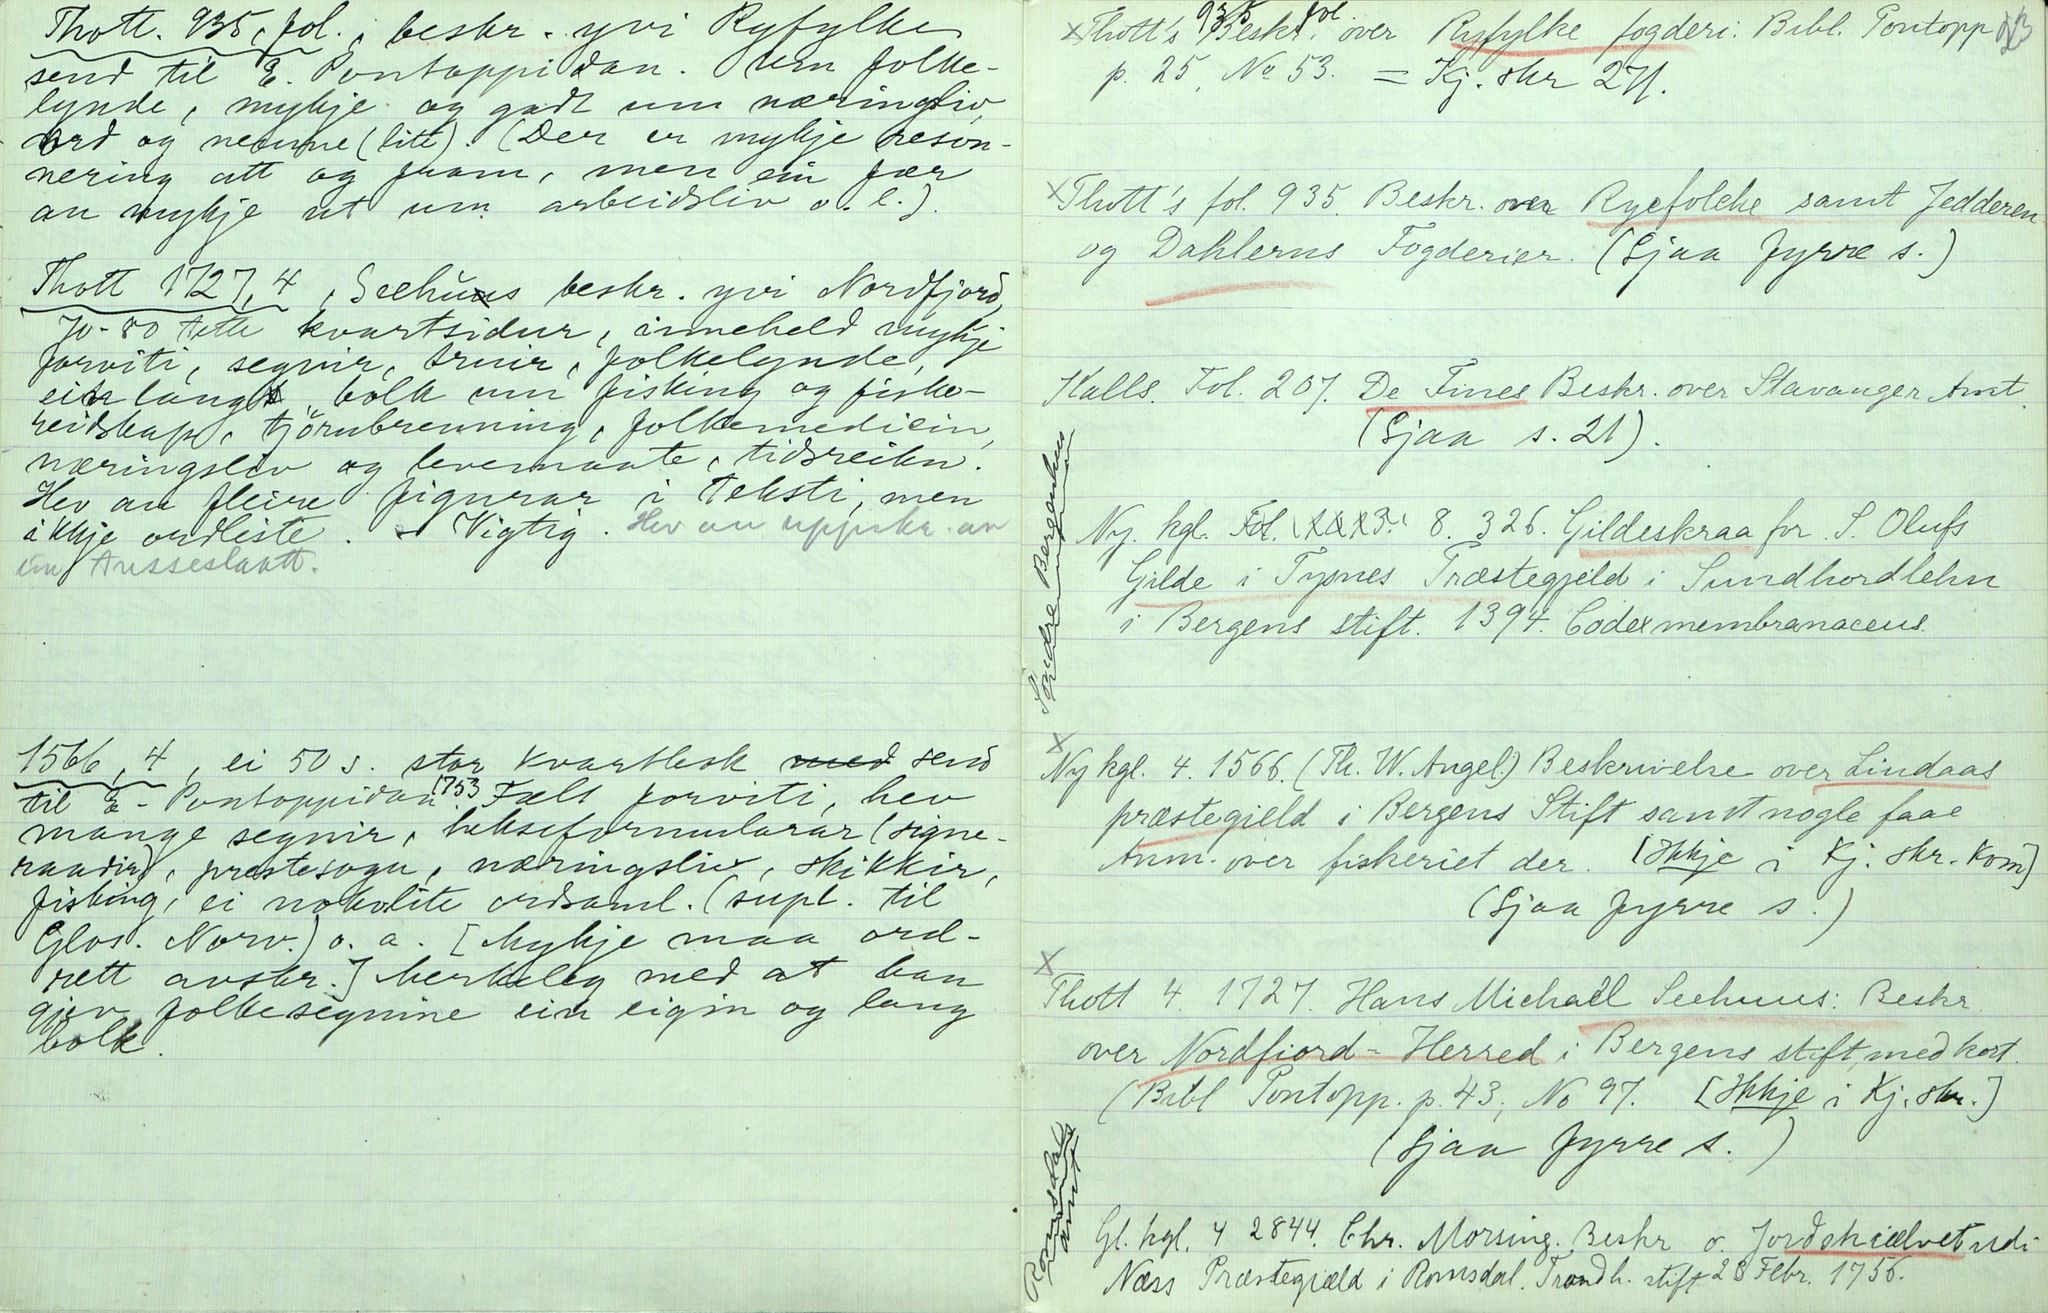 Thott. 935, fol., beskr. yvi Ryfylke
send til E. Pontoppidan. Um folke-
lynde, mykje og godt um næringsliv,
ord og nemne (lite). (Der er mykje reson-
nering att og fram, men ein fær
an mykje ut um arbeidsliv o. l.).
Thott 1727, 4, Seehuus beskr. yvi Nordfjord,
70-80 tette kvartsidur, inneheld mykje
forviti, segnir, truir, folkelynde,
ein lang bolk um fisking og fiske-
reidskap, tjörubrenning, folkemedicin,
næringsliv og levemaate, tidsreikn.
Hev au fleire figurar i teksti, men
ikkje ordliste. - Vigtig. Hev au uppskr. av
ein Tusseslaatt.
1566, 4, ei 50 s. stor kvartbok med send
til E. Pontoppidan 1753. Fælt forviti, hev
mange segnir, hekseformularar (signe-
raadir), prestesogn, næringsliv, skikkir,
fisking, ei nokolite ordsaml. (supl. til
Glos. Norv.) o. a. [Mykje maa ord-
rett avskr.] Merkeleg med at han
gjev folkesegnine ein eigin og lang
bolk.
x Thott's 935 fol. Beskr. over Ryfylke fogderi. Bibl. Pontopp
p. 25, No 53. = Kj. skr 271.
x Thott's fol. 935. Beskr. over Ryefolcke samt Jedderen
og Dahlerns Fogderier. (Sjaa fyrre s.)
Kalls. Fol. 207. De Fines Beskr. over Stavanger Amt.
(Sjaa s. 21).
Søndre Bergenhus
Ny. kgl. 8. 326. Gildeskraa for S. Olufs
Gilde i Tysnes Præstegjeld i Sundhordlehn
i Bergens stift. 1394. Codex membranaceus.
x
Ny kgl. 4. 1566. (Th. W. Angel.) Beskrivelse over Lindaas
præstegield i Bergens Stift samt nogle faae
Anm. over fiskeriet der. [Ikkje i Kj. skr. kom]
(Sjaa fyrre s.)
x
Thott 4. 1727. Hans Michaël Seehuus: Beskr.
over Nordfiord-Herred i Bergens stift, med kort.
(Bibl Pontopp. p. 43, No 97. [Ikkje i Kj. skr.]
(Sjaa fyrre s. )
Romsdals
amt
Gl. kgl. 4 2844. Chr. Morsing. Beskr o. Jordskiælvet udi
Næss Præstegiæld i Romsdal. Trondh. stift 28 Febr. 1756.